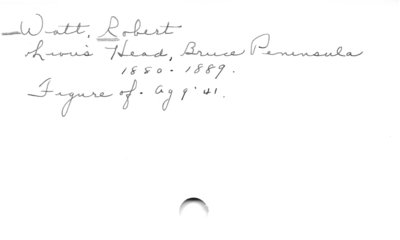 Watt, Robert
Lion's Head, Bruce Peninsula
1880 - 1889.
Figure of. Ag 9 '41.